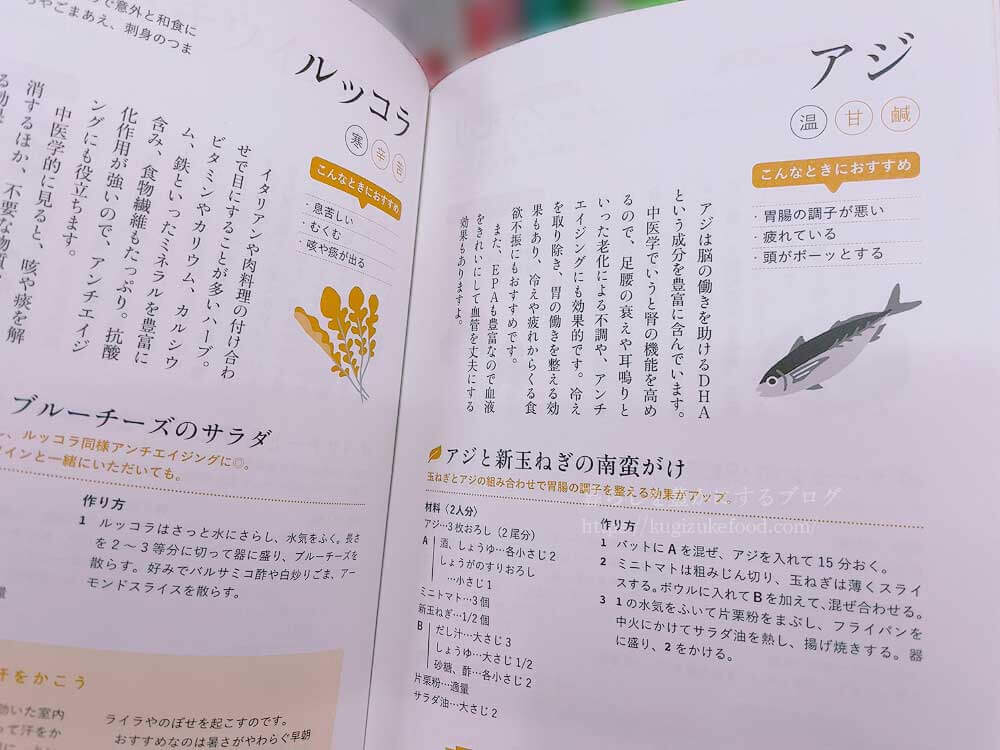 アジ
温 甘 鹹
こんなときにおすすめ
・胃腸の調子が悪い
・疲れている
・頭がボーッとする
アジは脳の働きを助けるDHA
という成分を豊富に含んでいます。
中医学でいうと腎の機能を高め
るので、足腰の衰えや耳鳴りと
いった老化による不調や、アンチ
エイジングにも効果的です。冷え
を取り除き、胃の働きを整える効
果もあり、冷えや疲れからくる食
欲不振にもおすすめです。
また、EPAも豊富なので血液
をきれいにして血管を丈夫にする
効果もありますよ。
アジと新玉ねぎの南蛮がけ
玉ねぎとアジの組み合わせで胃腸の調子を整える効果がアップ。
材料(2人分)
アジ…3枚おろし(2尾分)
A 酒、しょうゆ…各小さじ2
しょうがのすりおろし
…小さじ1
ミニトマト…3個
新玉ねぎ…1/2個
B だし汁…大さじ3
しょうゆ…大さじ1/2
砂糖、酢…各小さじ2
片栗粉…適量
サラダ油…大さじ2
作り方
1 バットにAを混ぜ、アジを入れて15分おく。
2 ミニトマトは粗みじん切り、玉ねぎは薄くスライ
スする。ボウルに入れてBを加えて、混ぜ合わせる。
3 1の水気をふいて片栗粉をまぶし、フライパンを
中火にかけてサラダ油を熱し、揚げ焼きする。器
に盛り、2をかける。
で意外と和食に
やごまあえ、刺身のつま
ルッコラ
寒 辛 苦
こんなときにおすすめ
・息苦しい
・むくむ
・咳や痰が出る
イタリアンや肉料理の付け合わ
せで目にすることが多いハーブ。
ビタミンやカリウム、カルシウ
ム、鉄といったミネラルを豊富に
含み、食物繊維もたっぷり。抗酸
化作用が強いので、アンチエイジ
ングにも役立ちます。
中医学的に見ると、咳や痰を解
消するほか、不要な物質
ブルーチーズのサラダ
、ルッコラ同様アンチエイジングに◎。
インと一緒にいただいても。
作り方
1 ルッコラはさっと水にさらし、水気をふく。長さ
を2〜3等分に切って器に盛り、ブルーチーズを
散らす。好みでバルサミコ酢や白炒りごま、アー
モンドスライスを散らす。
量
汗をかこう
効いた室内
って汗をか
ライラやのぼせを起こすのです。
おすすめなのは暑さがやわらぐ早朝
するブログ
http://kugizukefood.com/